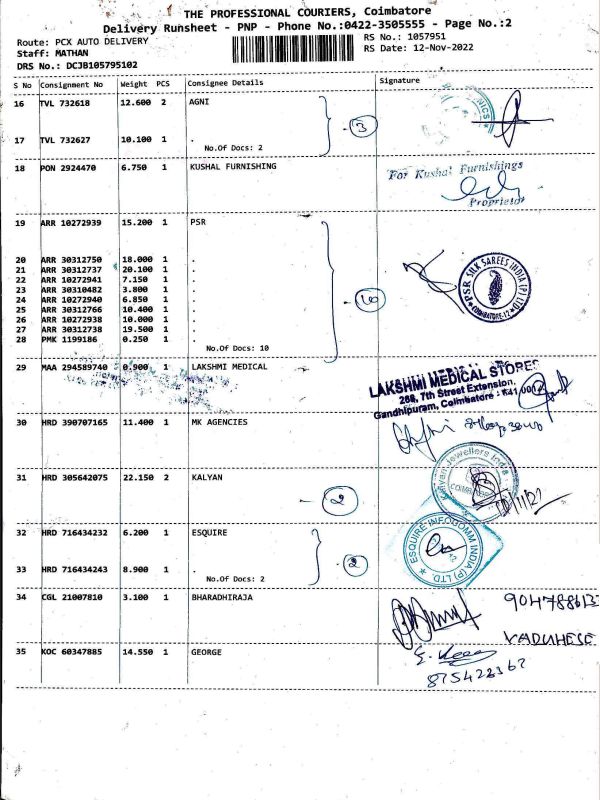 THE PROFESSIONAL COURIERS, Coimbatore
Delivery Runsheet - PNP - Phone No.:0422-3505555 - Page No.:2
Route: PCX AUTO DELIVERY
RS No.: 1057951
Staff: MATHAN
RS Date: 12-Nov-2022
DRS No.: DCJB105795102
S No Consignment No Weight PCS Consignee Details Signature
16 TVL 732618 12.600 2 AGNI
3
17 TVL 732627 10.100 1 .
No.Of Docs: 2
18 PON 2924470 6.750 1 KUSHAL FURNISHING
For Kushal Furnishings
Proprietor
19 ARR 10272939 15.200 1 PSR
20 ARR 30312750 18.000 1 .
21 ARR 30312737 20.100 1 .
22 ARR 10272941 7.150 1 .
23 ARR 30310482 3.800 1 .
24 ARR 10272940 6.850 1 .
25 ARR 30312766 10.400 1 .
26 ARR 10272938 10.000 1 .
27 ARR 30312738 19.500 1 .
28 PMK 1199186 0.250 1 .
No.Of Docs: 10
10
PSR SILK SAREES INDIA (P) LTD
COIMBATORE-12
29 MAA 294589740 0.900 1 LAKSHMI MEDICAL
LAKSHMI MEDICAL STORES
268, 7th Street Extension,
Gandhipuram, Coimbatore - 641 0012
30 HRD 390707165 11.400 1 MK AGENCIES
31 HRD 305642075 22.150 2 KALYAN
2
Kalyan Jewellers India
COIMBATORE
32 HRD 716434232 6.200 1 ESQUIRE
33 HRD 716434243 8.900 1 .
No.Of Docs: 2
2
ESQUIRE INFOCOMM INDIA (P) LTD
34 CGL 21007810 3.100 1 BHARADHIRAJA
35 KOC 60347885 14.550 1 GEORGE